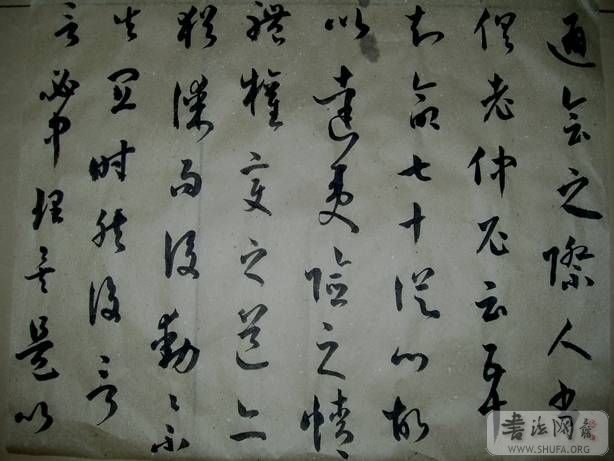 通會之際人書
俱老仲尼云五十
知命七十從心故
以達夷險之情
體權變之道亦
猶謀而後動〻不
失宜時然後言
言必中理矣是以
书法网
WWW.SHUFA.ORG